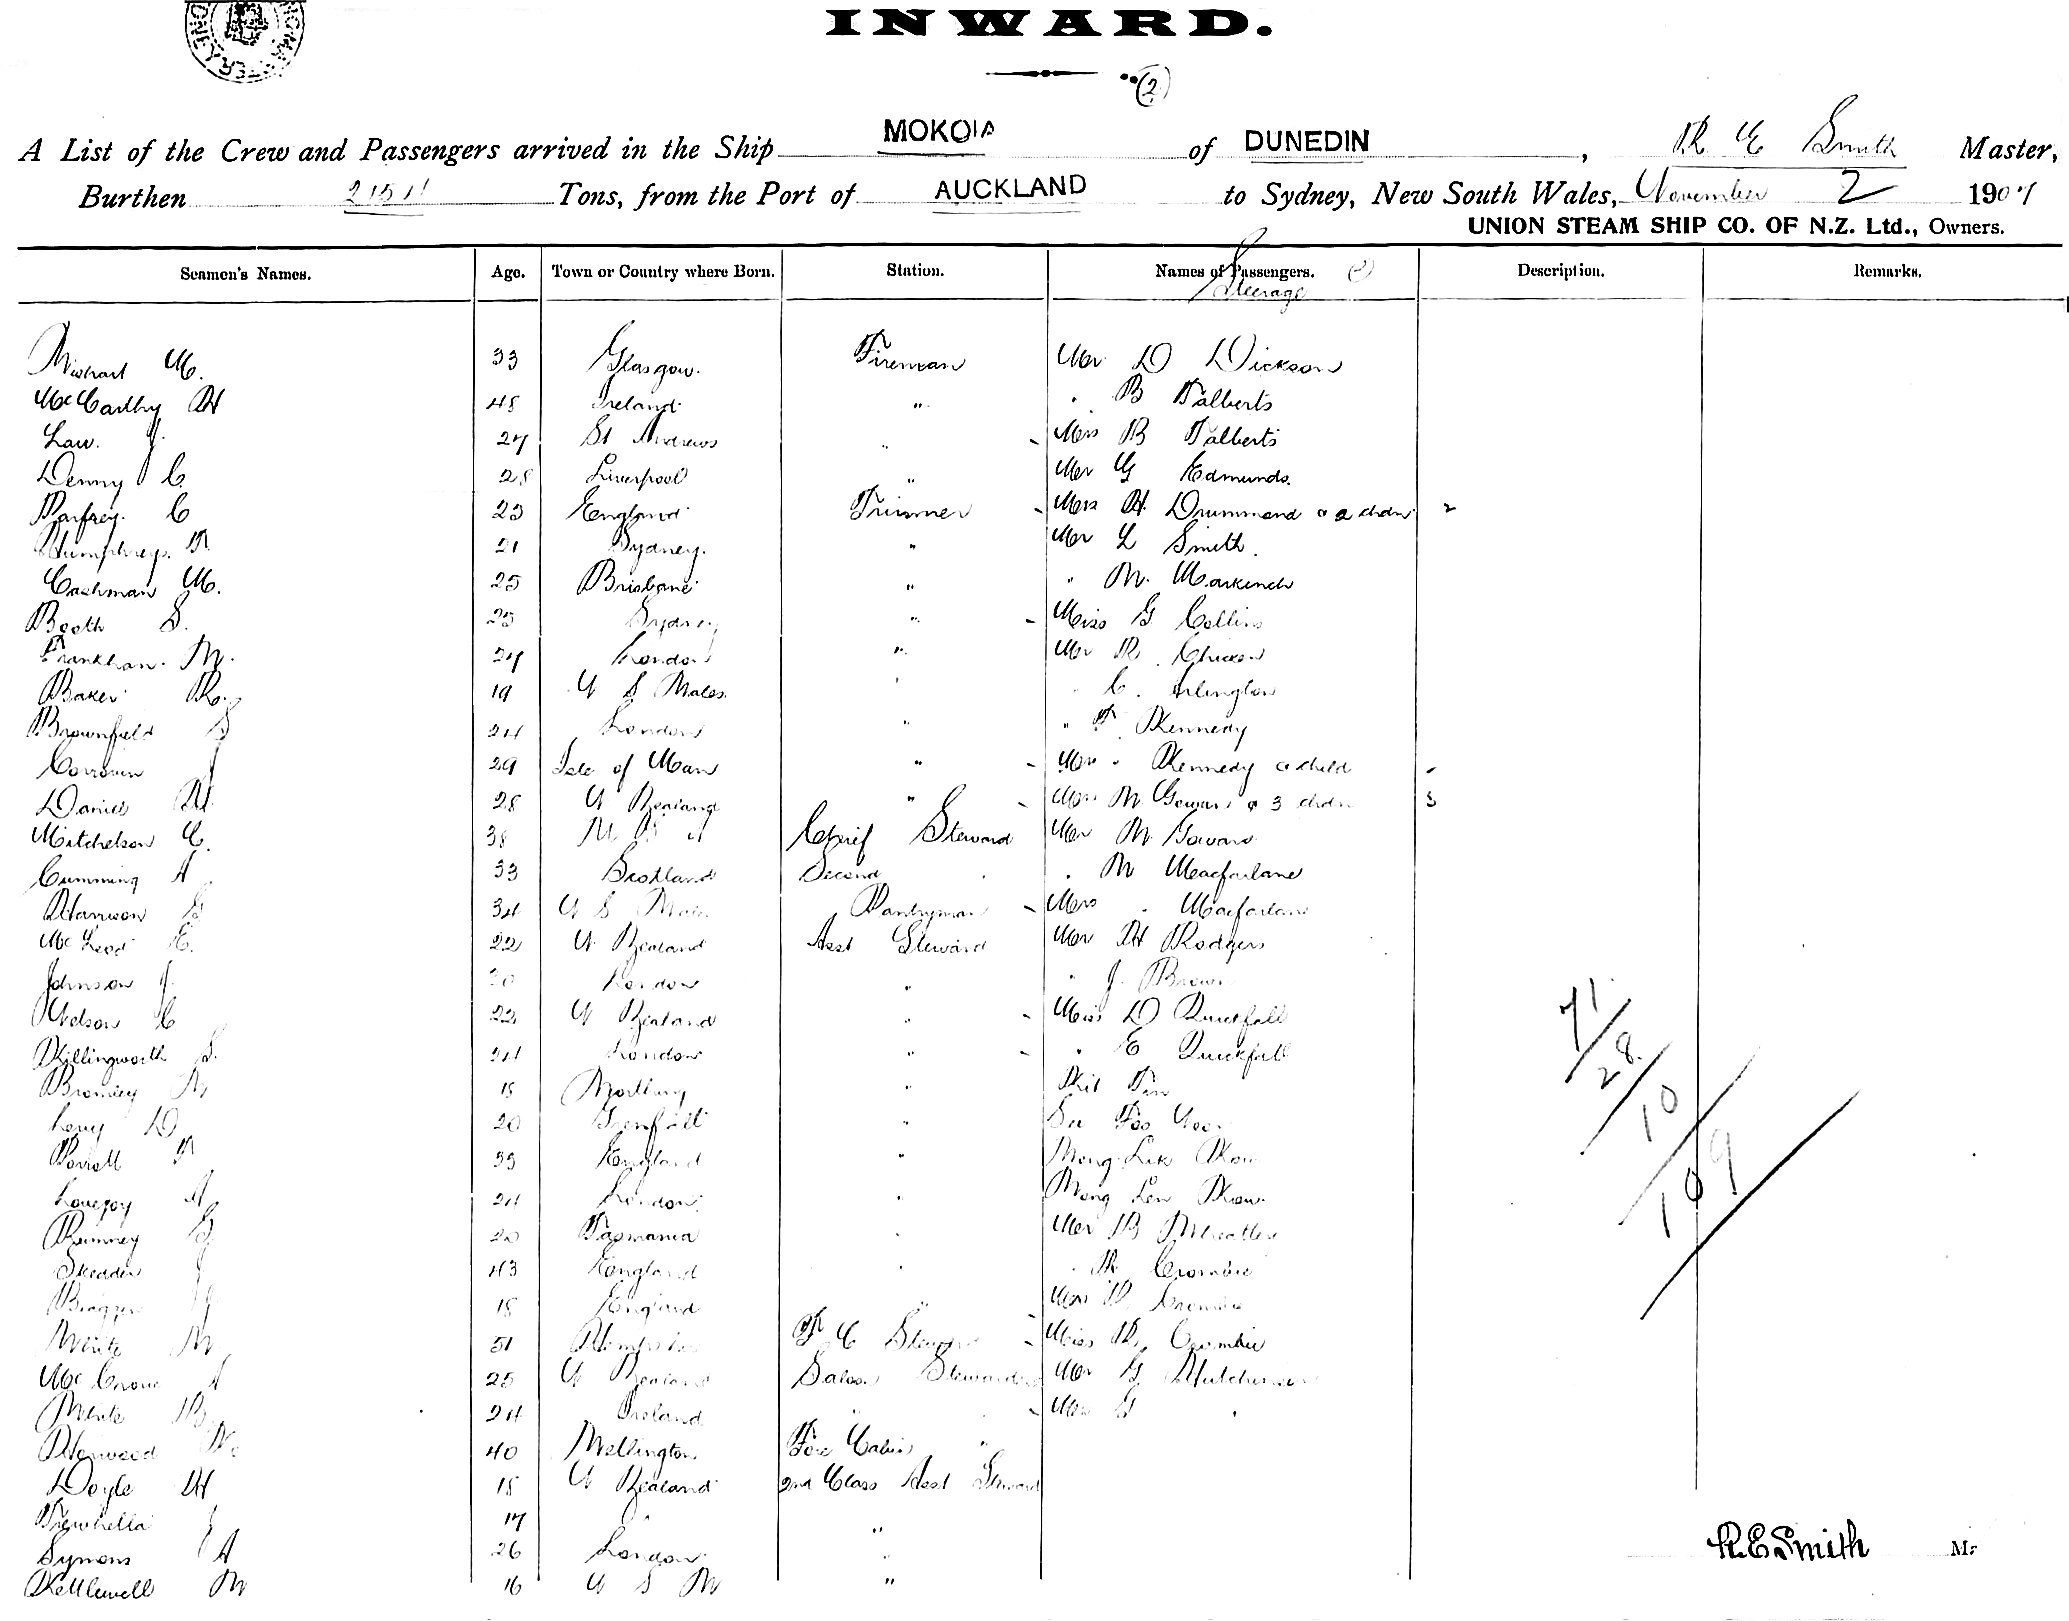 INWARD.
(2)
A List of the Crew and Passengers arrived in the Ship MOKOIA of DUNEDIN, R E Smith Master,
Burthen 2154 Tons, from the Port of AUCKLAND to Sydney, New South Wales, November 2 1907
UNION STEAM SHIP CO. OF N.Z. Ltd., Owners.
Seamen's Names. Age. Town or Country where Born. Station. Names of Passengers. Description. Remarks.
Steerage
Wishart M. 33 Glasgow. Fireman Mr D Dickson
McCarthy H 48 Ireland " " B Talberts
Law. J. 27 St Andrews " Mrs B Talberts
Denny C 28 Liverpool " Mr G Edmunds.
Parfrey. C 23 England Trimmer Mrs H. Drummond & 2 chdn 2
Humphreys. F 21 Sydney. " Mr L Smith.
Cashman M. 25 Brisbane " " W.
Booth S. 23 Sydney " Miss G Collins
W. 27 London " Mr R.
Baker R. 19 N S Wales. " " C. Arlington
Brownfield S 24 London " " F Kennedy
29 Isle of Man " Mrs " Kennedy & child
Daniels H. 28 N Zealand " Mrs W. Gowans & 3 chdn 3
Mitchelson C. 38 Chief Steward Mr W
Cumming A 33 Scotland Second " " W Macfarlane
Harrison G 34 N S Wales Pantryman Mrs " Macfarlane
McLeod E. 22 N Zealand Asst Steward Mr H Rodgers
Johnson J. London " " J. Brown
Nelson C 22 N Zealand " Miss D Quickfall
Killingworth S. 24 London " " E Quickfall
Bromley A 18 "
Levy D 20 Grenfell "
F 33 England " Wong
Lovejoy A 24 London " Wong
Rumney G 20 Tasmania " Mr B Wheatley
43 England " " R Crombie
J 18 England " Mrs R. Crombie
White W 51 Miss R. Crombie
A 25 N Zealand Saloon Stewardess Mr G Hutchinson
White B. 24 Ireland " " Mrs G "
40 Wellington Fore Cabin "
Doyle H 18 N Zealand 2nd Class Asst Steward
Trewhella J 17 " "
Symons A 26 London "
Kettlewell W 16 N S W "
71
28
10
109
R.E.Smith